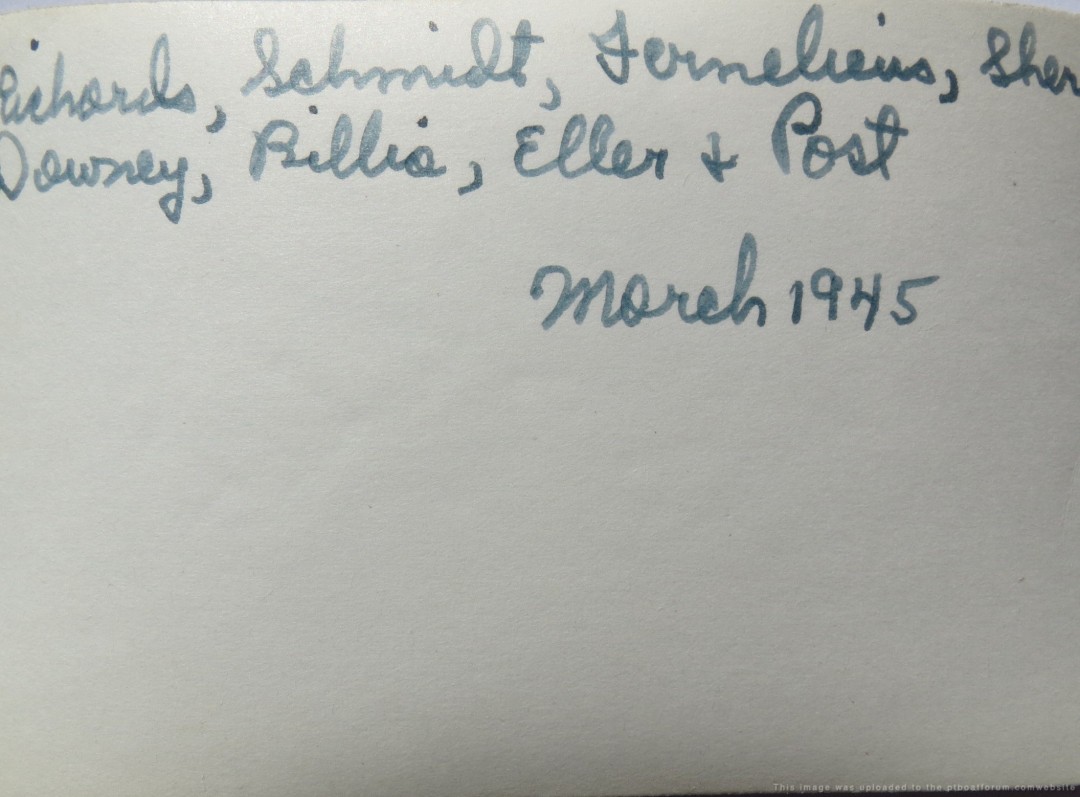 Richards, Schmidt, Fernelieus, Sher
Downey, Billia, Eller & Post
March 1945
This image was uploaded to the ptboatforum.comwebsite